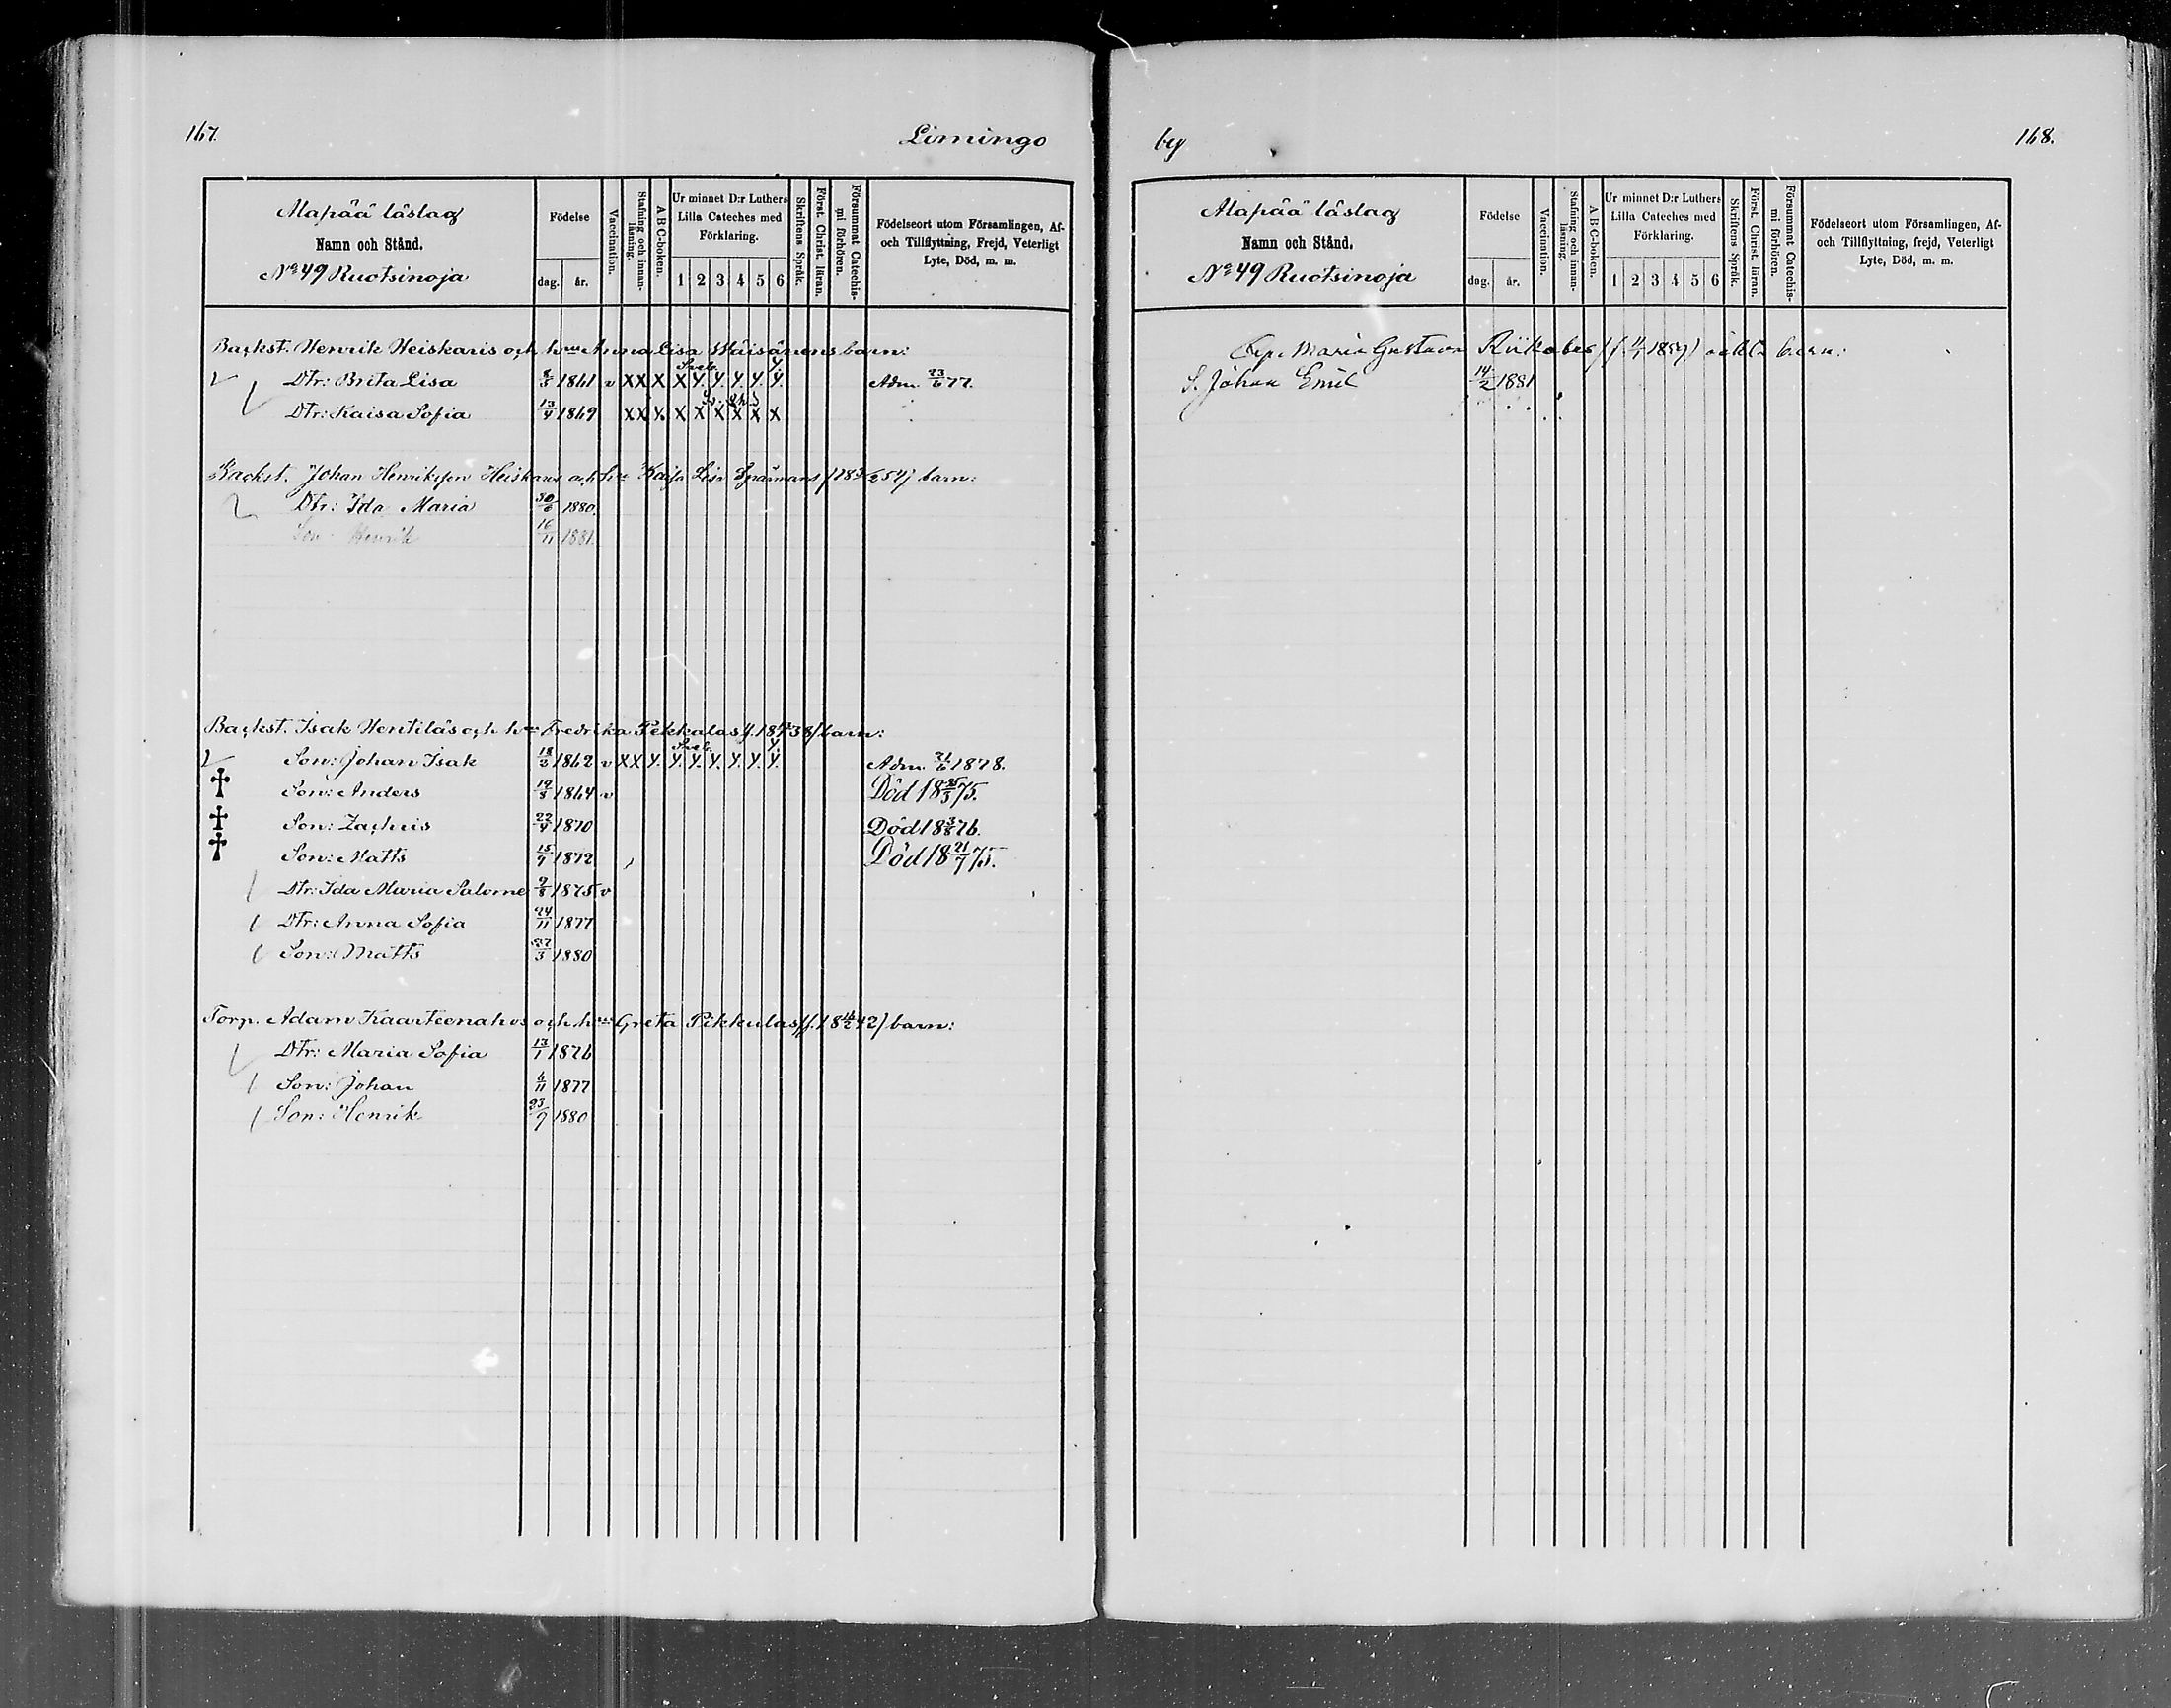 167.
Limingo
Alapää läslag
Namn och Stånd.
No 49 Ruotsinoja
Födelse
dag. år.
Vaccination.
Stafning och innan-läsning.
A B C-boken.
Ur minnet D:r Luthers Lilla Cateches med Förklaring.
1 2 3 4 5 6
Skriftens Språk.
Först. Christ. läran.
Försummat Catechismi förhören.
Födelseort utom Församlingen, Af- och Tillflyttning, Frejd, Veterligt Lyte, Död, m. m.
Backst. Henrik Heiskaris och hus Anna Lisa Wäisänens barn:
Dtr: Brita Lisa 8/3 1861 v X X X X Y. Y. Y. Y. Y. Adm. 23/6 77.
Dtr: Kaisa Sofia 13/4 1869 X X X X X X X X X
Backst. Johan Henriksson Heiskaris och hus Kaisa Lisa barn:
Dtr: Ida Maria 30/6 1880.
Son Henrik 16/11 1881.
Backst. Isak Hentiläs och hus Fredrika Pekkalas barn:
Son: Johan Isak 18/2 1862 v X X Y. Y. Y. Y. Y. Y. Y. Adm. 21/6 1878.
Son: Anders 19/3 1864 v Död 18 25/3 75.
Son: Zachris 22/4 1870 Död 18 3/8 76.
Son: Matts 15/9 1872 Död 18 21/7 75.
Dtr: Ida Maria Salome 9/8 1875 v
Dtr: Anna Sofia 24/11 1877
Son: Matts 27/3 1880
Torp. Adam Kaarteenahos och hus Greta Pikkulas (f. 18 16/2 42) barn:
Dtr: Maria Sofia 13/1 1876
Son: Johan 6/11 1877
Son: Henrik 23/9 1880
by
168.
Alapää läslag
Namn och Stånd.
No 49 Ruotsinoja
Födelse
dag. år.
Vaccination.
Stafning och innan-läsning.
A B C-boken.
Ur minnet D:r Luthers Lilla Cateches med Förklaring.
1 2 3 4 5 6
Skriftens Språk.
Först. Christ. läran.
Försummat Catechismi förhören.
Födelseort utom Församlingen, Af- och Tillflyttning, frejd, Veterligt Lyte, Död, m. m.
Maria Gustava oäkta barn:
S. Johan Emil 14/2 1881